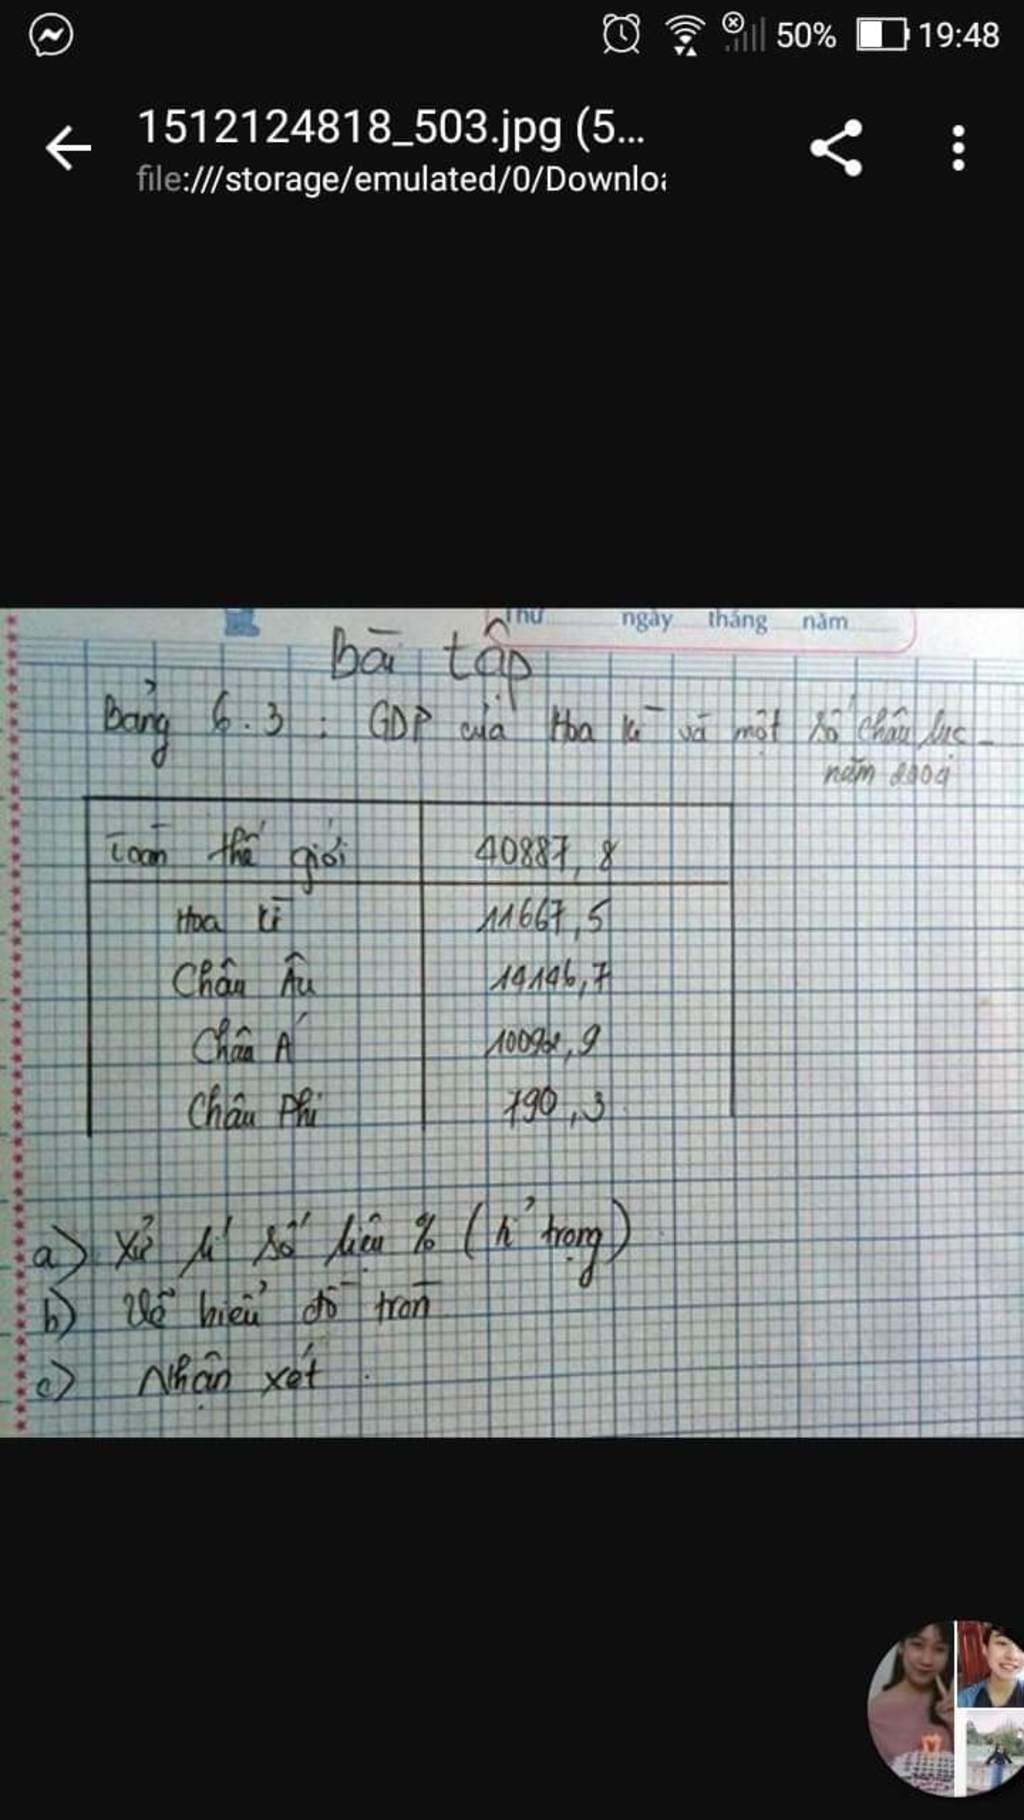 50% 19:48
1512124818_503.jpg (5...
file:///storage/emulated/0/Downloa
Thứ ngày tháng năm
Bài tập
Bảng 6.3 : GDP của Hoa Kì và một số châu lục
năm 2004
Toàn thế giới 40887,8
Hoa Kì 11667,5
Châu Âu 14146,7
Châu Á ,9
Châu Phi 790,3
a) Xử lí số liệu % (tỉ trọng)
b) Vẽ biểu đồ tròn
c) Nhận xét.